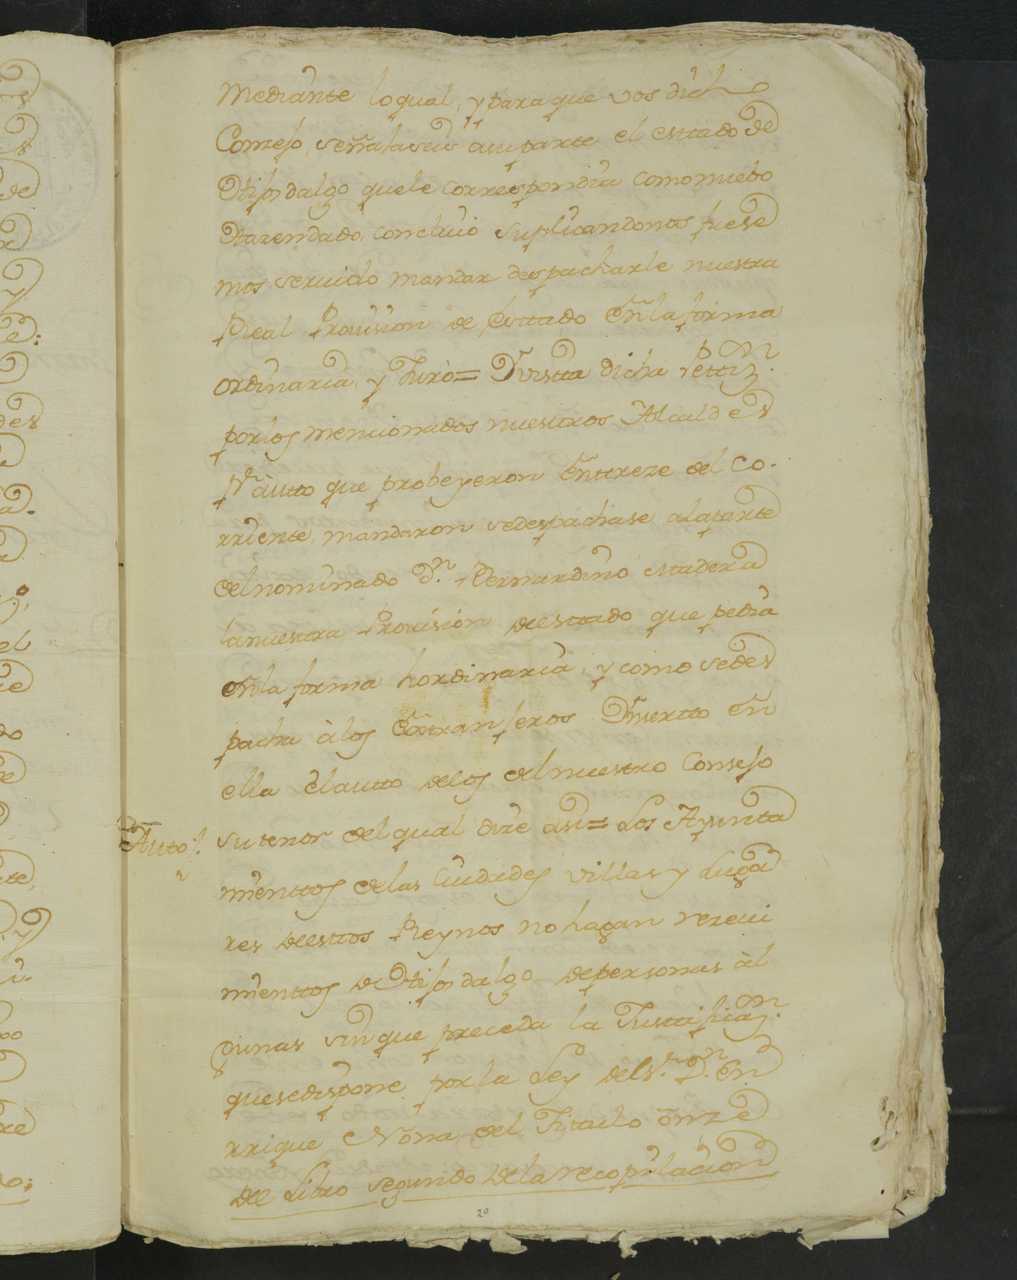 Mediante lo qual, y para que vos dicho
Consejo, señalaseis a su parte el estado de
Hijosdalgo que le correspondia como nieto
Harendado, concluio suplicandonos fuese
mos servido mandar despacharle nuestra
Real Provision de Estado En la forma
ordinaria, y Juro= Y vista dicha Pettizn.
por los mencionados nuestros Alcaldes
Pr. autto que probeyeron En trece del Co-
rriente, mandaron se despachase a la parte
del nominado Dn. Bernardino
la nuestra Provision de esttado que pedia
En la forma hordinaria, y como se des
pacha à los Extranjeros Ynsertto En
ella el autto de los del nuestro Consejo
Autto. su tenor del qual dize asi= Los Ayunta
mienttos de las Ciudades villas y Luga
res de esttos Reynos no hagan recevi
mienttos de Hijosdalgo de personas al
gunas sin que preceda la Justificazn.
que se dispone por la Ley del Sr. Dn. En
rrique Nona del Titulo onze
del Libro segundo de la recopilacion
20